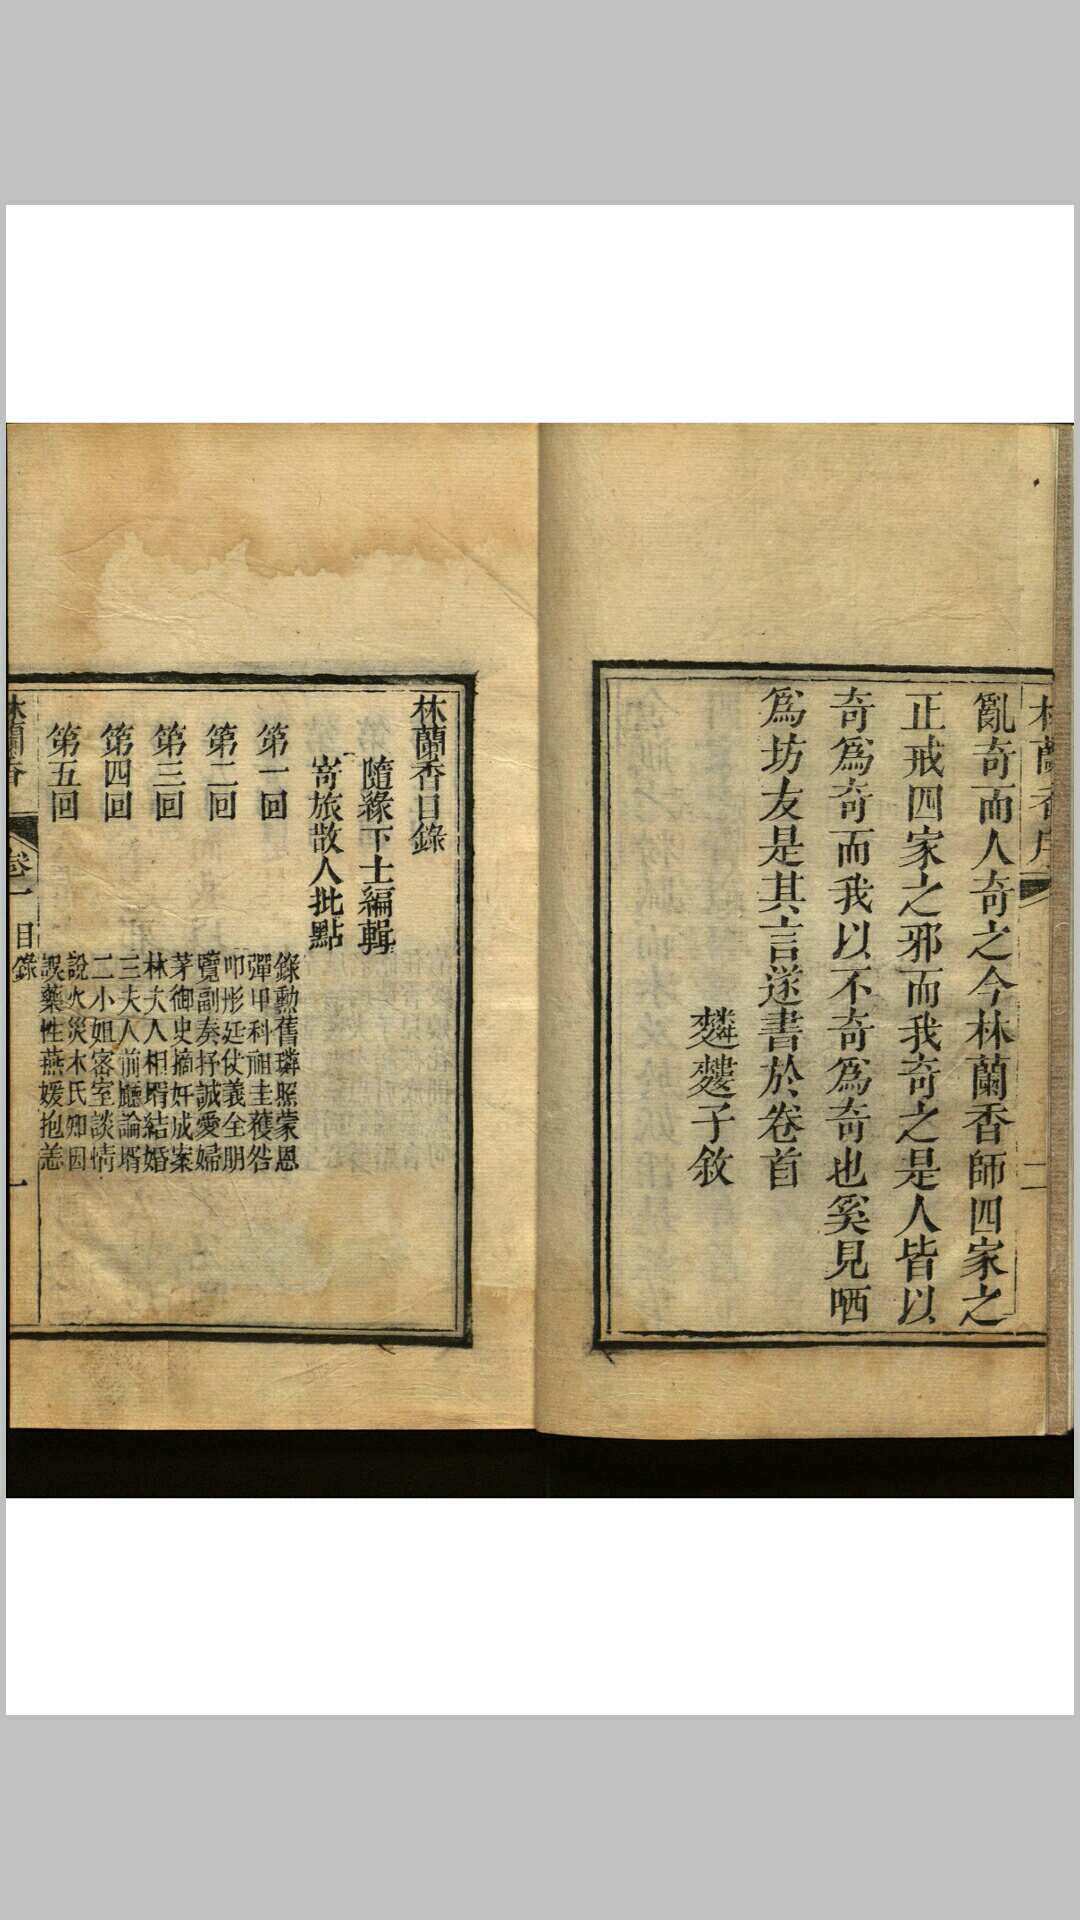 林蘭香序
二
亂奇而人奇之今林蘭香師四家之
正戒四家之邪而我奇之是人皆以
奇爲奇而我以不奇爲奇也奚見哂
爲坊友是其言遂書於卷首
麟𪋝子敘
林蘭香目錄
隨緣下士編輯
寄旅散人批點
第一回
錄勳舊璘照蒙恩
彈甲科祖圭獲咎
第二回
叩彤廷仗義全朋
覽副奏抒誠愛婦
第三回
茅御史摘奸成案
林夫人相壻結婚
第四回
三夫人前廳論壻
二小姐密室談情
第五回
說火災木氏知因
誤藥性燕媛抱恙
林蘭香
卷一
目錄
一